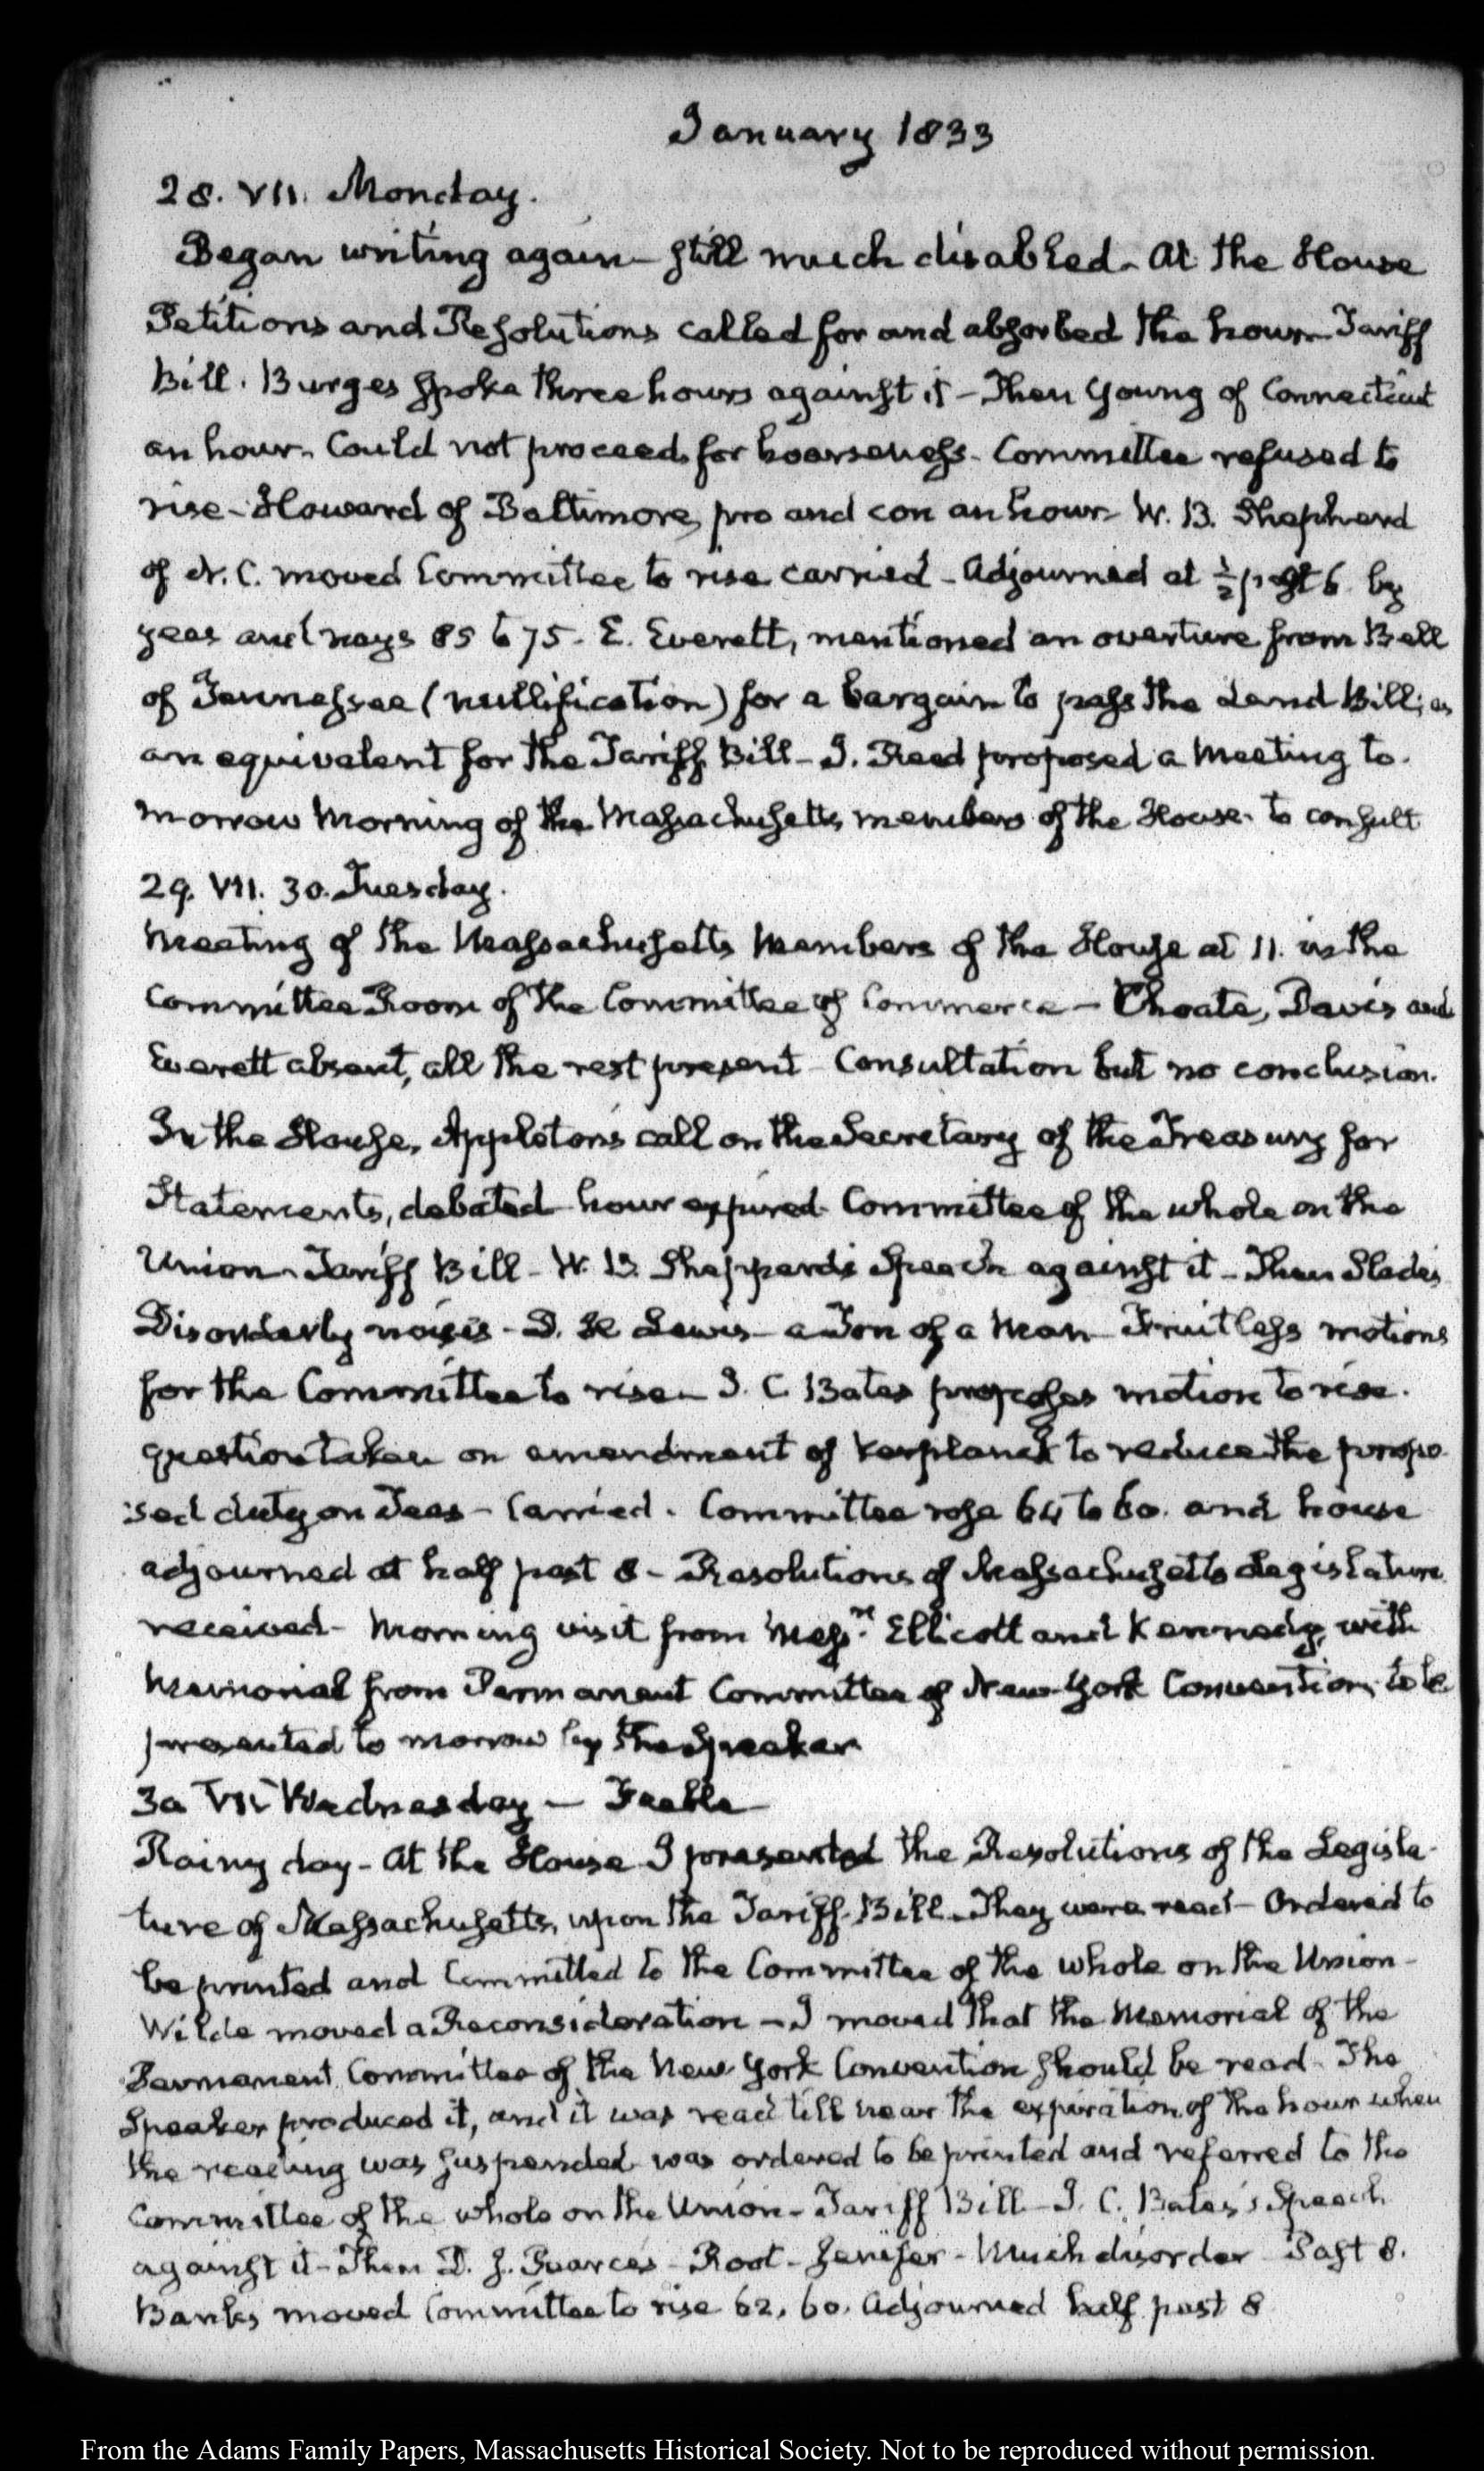 January 1833
28. VII. Monday.
Began writing again - still much disabled - At the House
Petitions and Resolutions called for and absorbed the hour - Tariff
Bill. Burges spoke three hours against it - Then Young of Connecticut
an hour - Could not proceed for hoarseness - Committee refused to
rise - Howard of Baltimore, pro and con an hour - W. B. Shepherd
of N. C. moved Committee to rise carried - Adjourned at ½ past 6 by
yeas and nays 85 to 75 - E. Everett, mentioned an overture from Bell
of Tennessee (nullification) for a bargain to pass the Land Bill, as
an equivalent for the Tariff Bill - J. Reed proposed a meeting to-
morrow morning of the Massachusetts members of the House to consult
29. VII. 30. Tuesday.
Meeting of the Massachusetts Members of the House at 11. in the
Committee Room of the Committee of Commerce - Choate, Davis and
Everett absent, all the rest present - Consultation but no conclusion.
In the House, Appleton's call on the Secretary of the Treasury for
Statements, debated - hour expired - Committee of the whole on the
Union - Tariff Bill - W. B. Shepperd's Speech against it - Then Slade's
Disorderly noises - D. H. Lewis - a Ton of a Man - Fruitless motions
for the Committee to rise - I. C. Bates proposes motion to rise.
question taken on amendment of Verplanck to reduce the propo-
sed duty on Teas - Carried. Committee rose 64 to 60. and house
adjourned at half past 8 - Resolutions of Massachusetts Legislature
received - Morning visit from Messrs Ellicott and Kennedy, with
Memorial from Permanent Committee of New-York Convention, to be
presented to morrow by the Speaker
30 VII Wednesday - Feeble -
Rainy day - At the House I presented the Resolutions of the Legisla-
ture of Massachusetts, upon the Tariff Bill - They were read - Ordered to
be printed and Committed to the Committee of the whole on the Union -
Wilde moved a Reconsideration - I moved that the Memorial of the
Permanent Committee of the New York Convention should be read - The
Speaker produced it, and it was read till near the expiration of the hour when
the reading was suspended - was ordered to be printed and referred to the
Committee of the whole on the Union - Tariff Bill - I. C. Bates's Speech
against it - Then D. J. Pearce's - Root - Jenifer - Much disorder - Past 8.
Banks moved Committee to rise 62, 60. Adjourned half past 8
From the Adams Family Papers, Massachusetts Historical Society. Not to be reproduced without permission.